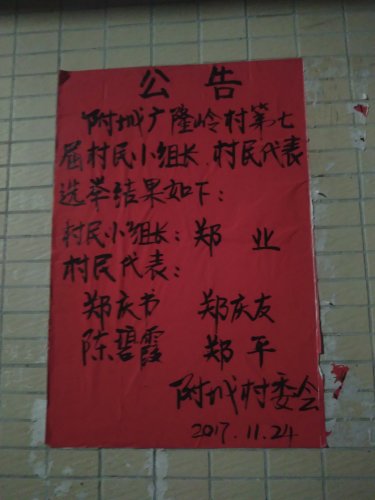 公告
附城广隆岭村第七
届村民小组长、村民代表
选举结果如下:
村民小组长:郑业
村民代表:
郑庆书 郑庆友
陈碧霞 郑平
附城村委会
2017.11.24